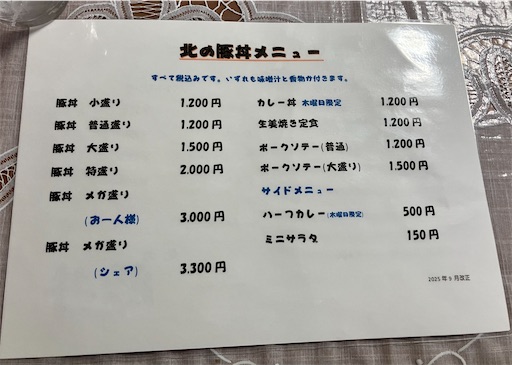 北の豚丼メニュー
すべて税込みです。いずれも味噌汁と香物が付きます。
豚丼 小盛り 1.200円
豚丼 普通盛り 1.200円
豚丼 大盛り 1.500円
豚丼 特盛り 2.000円
豚丼 メガ盛り
(お一人様) 3.000円
豚丼 メガ盛り
(シェア) 3.300円
カレー丼 木曜日限定 1.200円
生姜焼き定食 1.200円
ポークソテー(普通) 1.200円
ポークソテー(大盛り) 1.500円
サイドメニュー
ハーフカレー(木曜日限定) 500円
ミニサラダ 150円
2025年9月改正